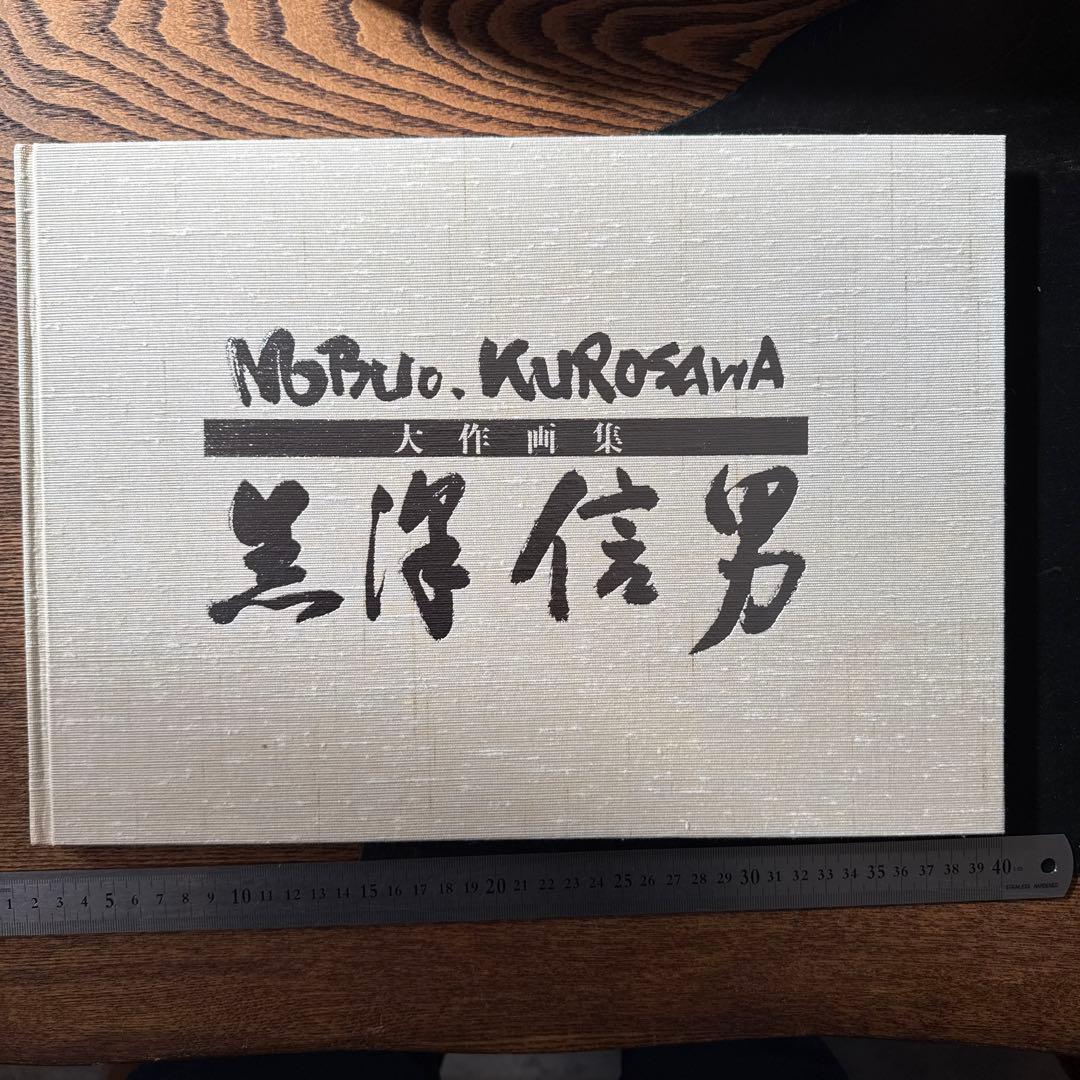 NOBUO. KUROSAWA
大作画集
黒沢信男
1 2 3 4 5 6 7 8 9 10 11 12 13 14 15 16 17 18 19 20 21 22 23 24 25 26 27 28 29 30 31 32 33 34 35 36 37 38 39 40 cm
STAINLESS HARDENED